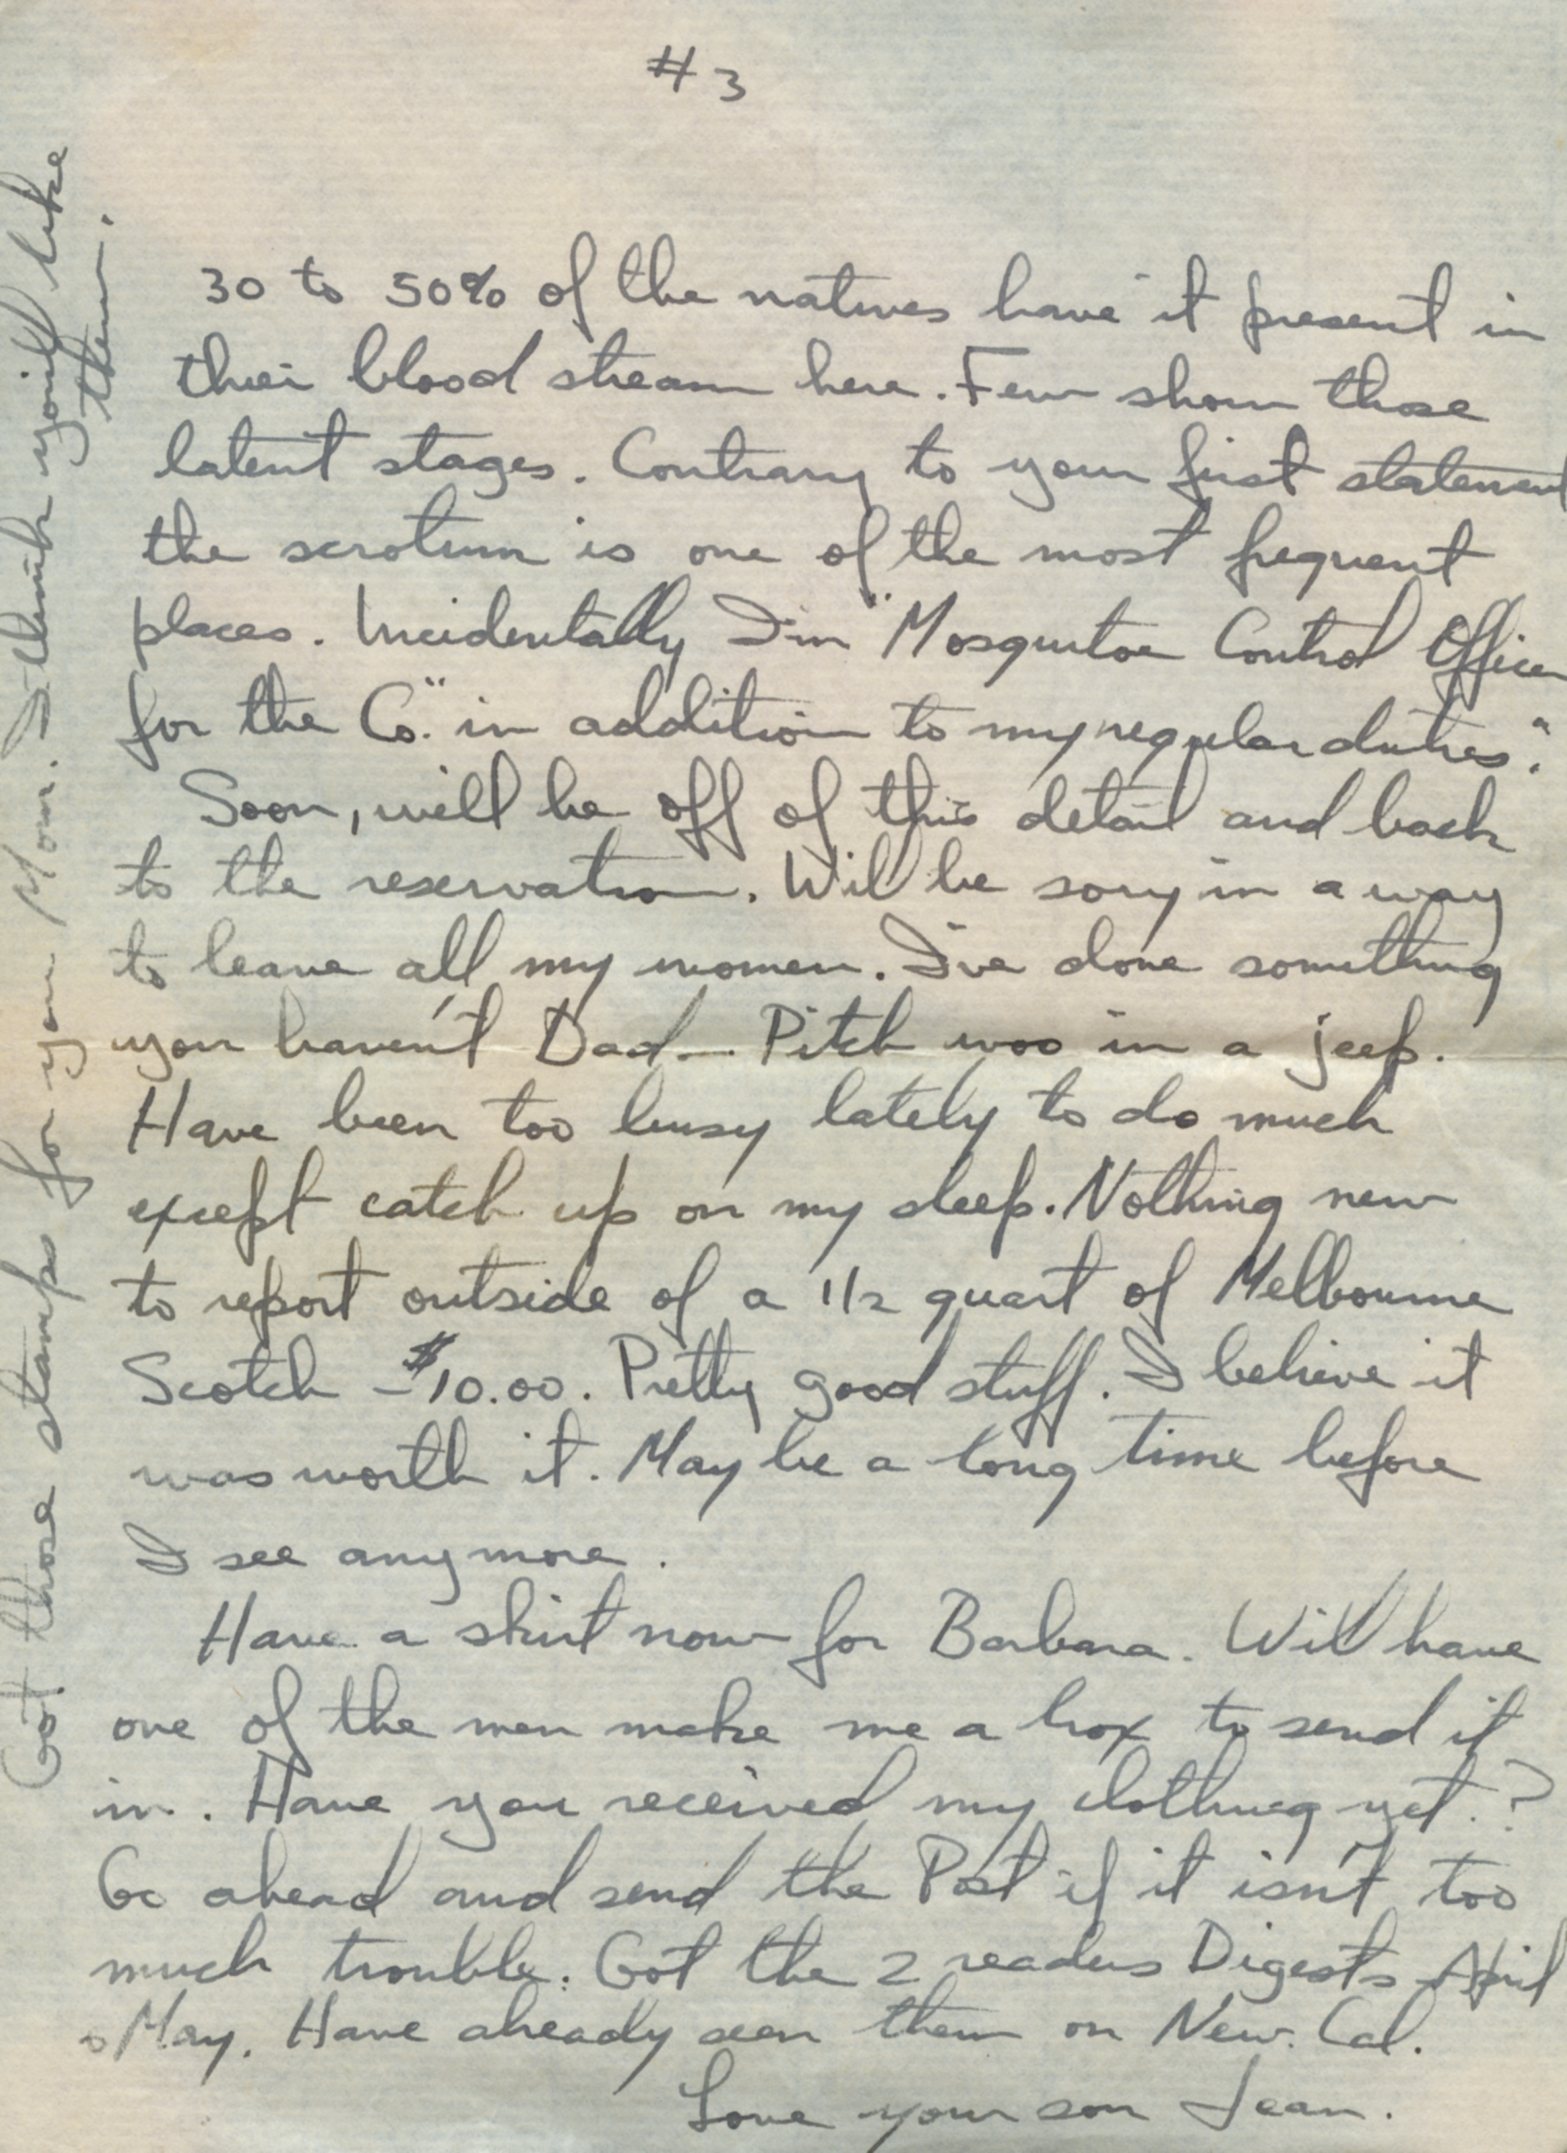 #3
30 to 50% of the natives have it present in
their blood stream here. Few show those
latent stages. Contrary to your first statement
the scrotum is one of the most frequent
places. Incidentally I'm "Mosquitoe Control Officer
for the Co." in addition to my regular duties".
Soon, will be off of this detail and back
to the reservation. Will be sorry in a way
to leave all my women. I've done something
you haven't Dad – Pitch woo in a jeep.
Have been too busy lately to do much
except catch up on my sleep. Nothing new
to report outside of a 1/2 quart of Melbourne
Scotch – $10.00. Pretty good stuff. I believe it
was worth it. May be a long time before
I see any more.
Have a skirt now for Barbara. Will have
one of the men make me a box to send it
in. Have you received my clothing yet.?
Go ahead and send the Post if it isn't too
much trouble. Got the 2 readers Digests April
& May. Have already seen them on New. Cal.
Love your son Jean.
Got those stamps for you Mom. I think you'll like
them.